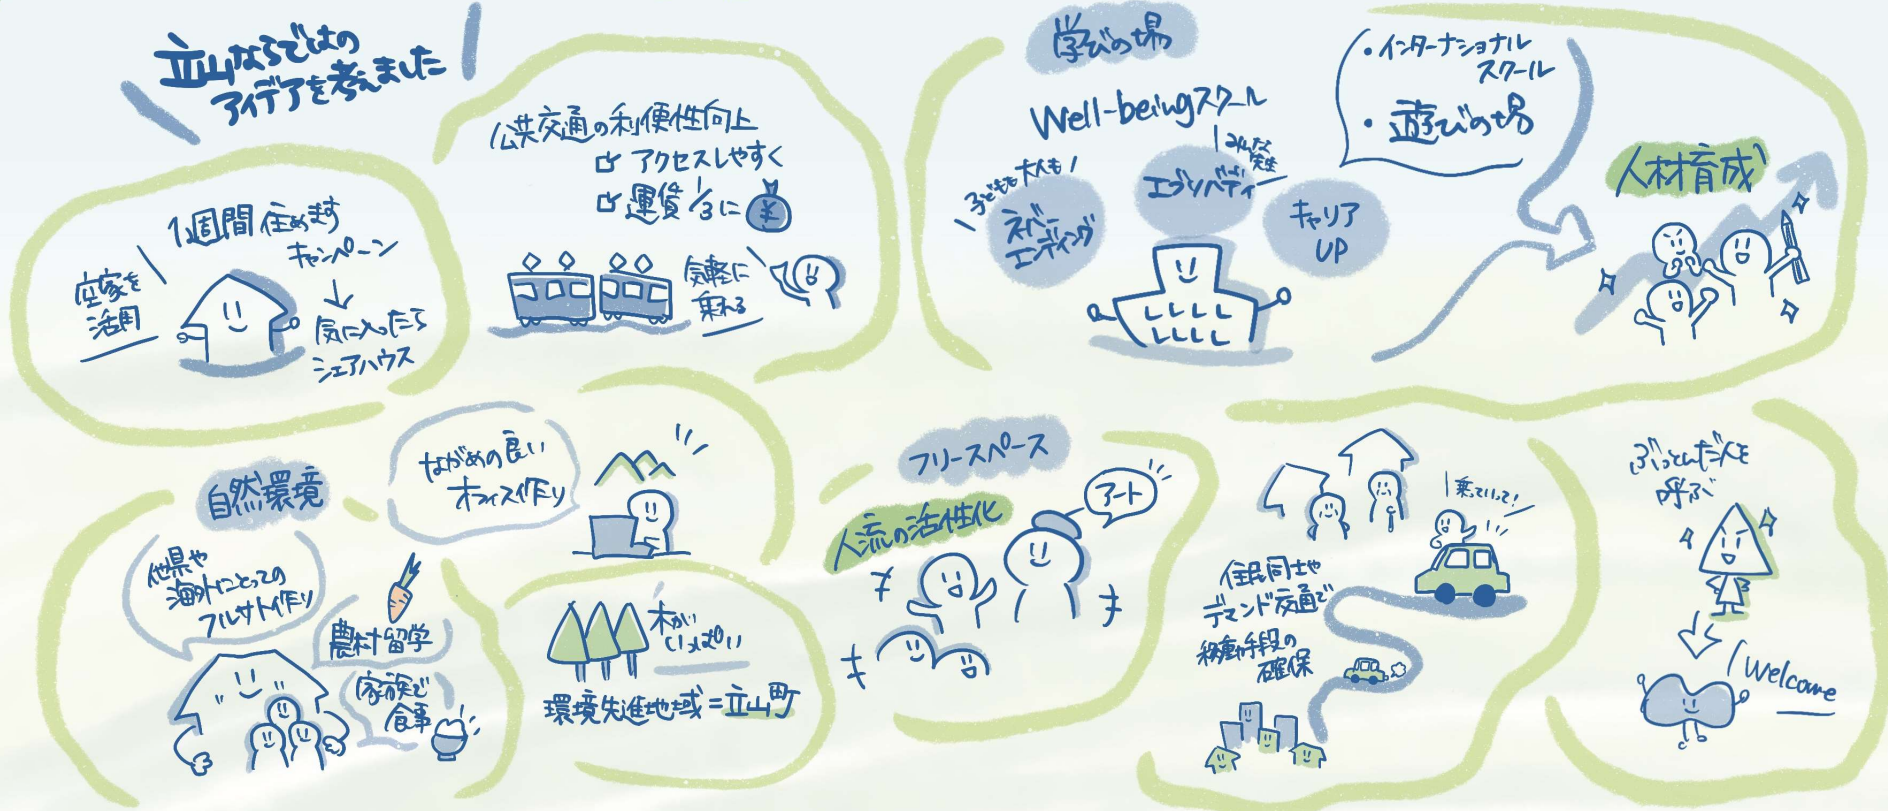 立山ならではの
アイデアを考えました
1週間住めます
キャンペーン
空家を
活用
気に入ったら
シェアハウス
公共交通の利便性向上
アクセスしやすく
運賃1/3に
¥
気軽に
乗れる
学びの場
Well-beingスクール
子どもも大人も
ネバー
エンディング
みんな
先生
エブリバディ
キャリア
UP
・インターナショナル
スクール
・遊びの場
人材育成
自然環境
ながめの良い
オフィス作り
他県や
海外にとっての
フルサト作り
農村留学
家族で
食事
木が
いっぱい
環境先進地域=立山町
フリースペース
人流の活性化
アート
乗っていって!
住民同士や
デマンド交通で
移動手段の
確保
ぶっとんだ人を
呼ぶ
Welcome